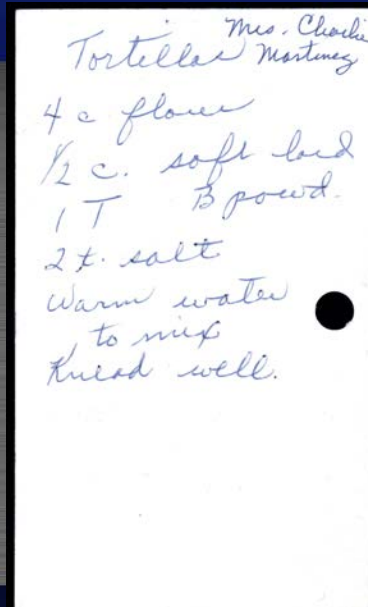 Tortillas
Mrs. Charlie
Martinez
4 c flour
1/2 c. soft lard
1 T B powd.
2 t. salt
Warm water
to mix
Knead well.